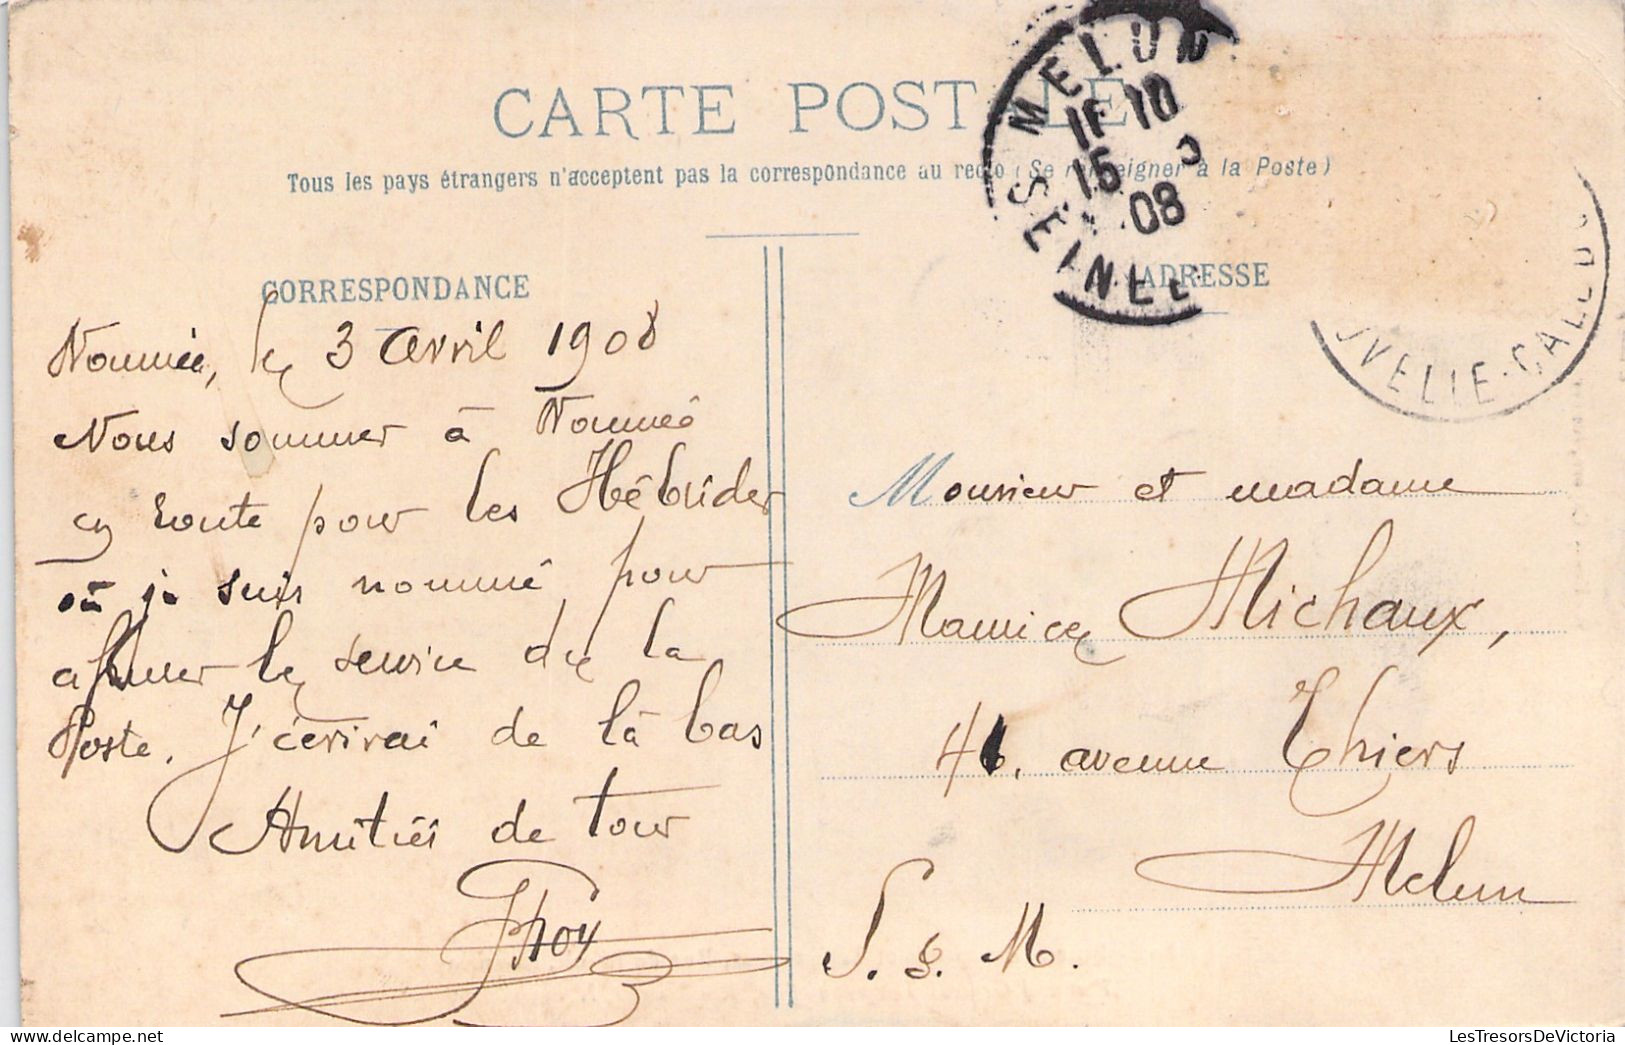 CARTE POSTALE
Tous les pays étrangers n'acceptent pas la correspondance au recto (Se renseigner à la Poste)
MELUN
15
08
SEINE
VELLE-CALED
CORRESPONDANCE
ADRESSE
Nouméa, le 3 Avril 1908
Nous sommes à Nouméa
en route pour les Hébrides
où je suis nommé pour
assurer le service de la
Poste. J'écrirai de là bas
Amitiés de tour
Monsieur et madame
Maurice Michaux,
41, avenue Thiers
Melun
S. & M.
LesTresorsDeVictoria